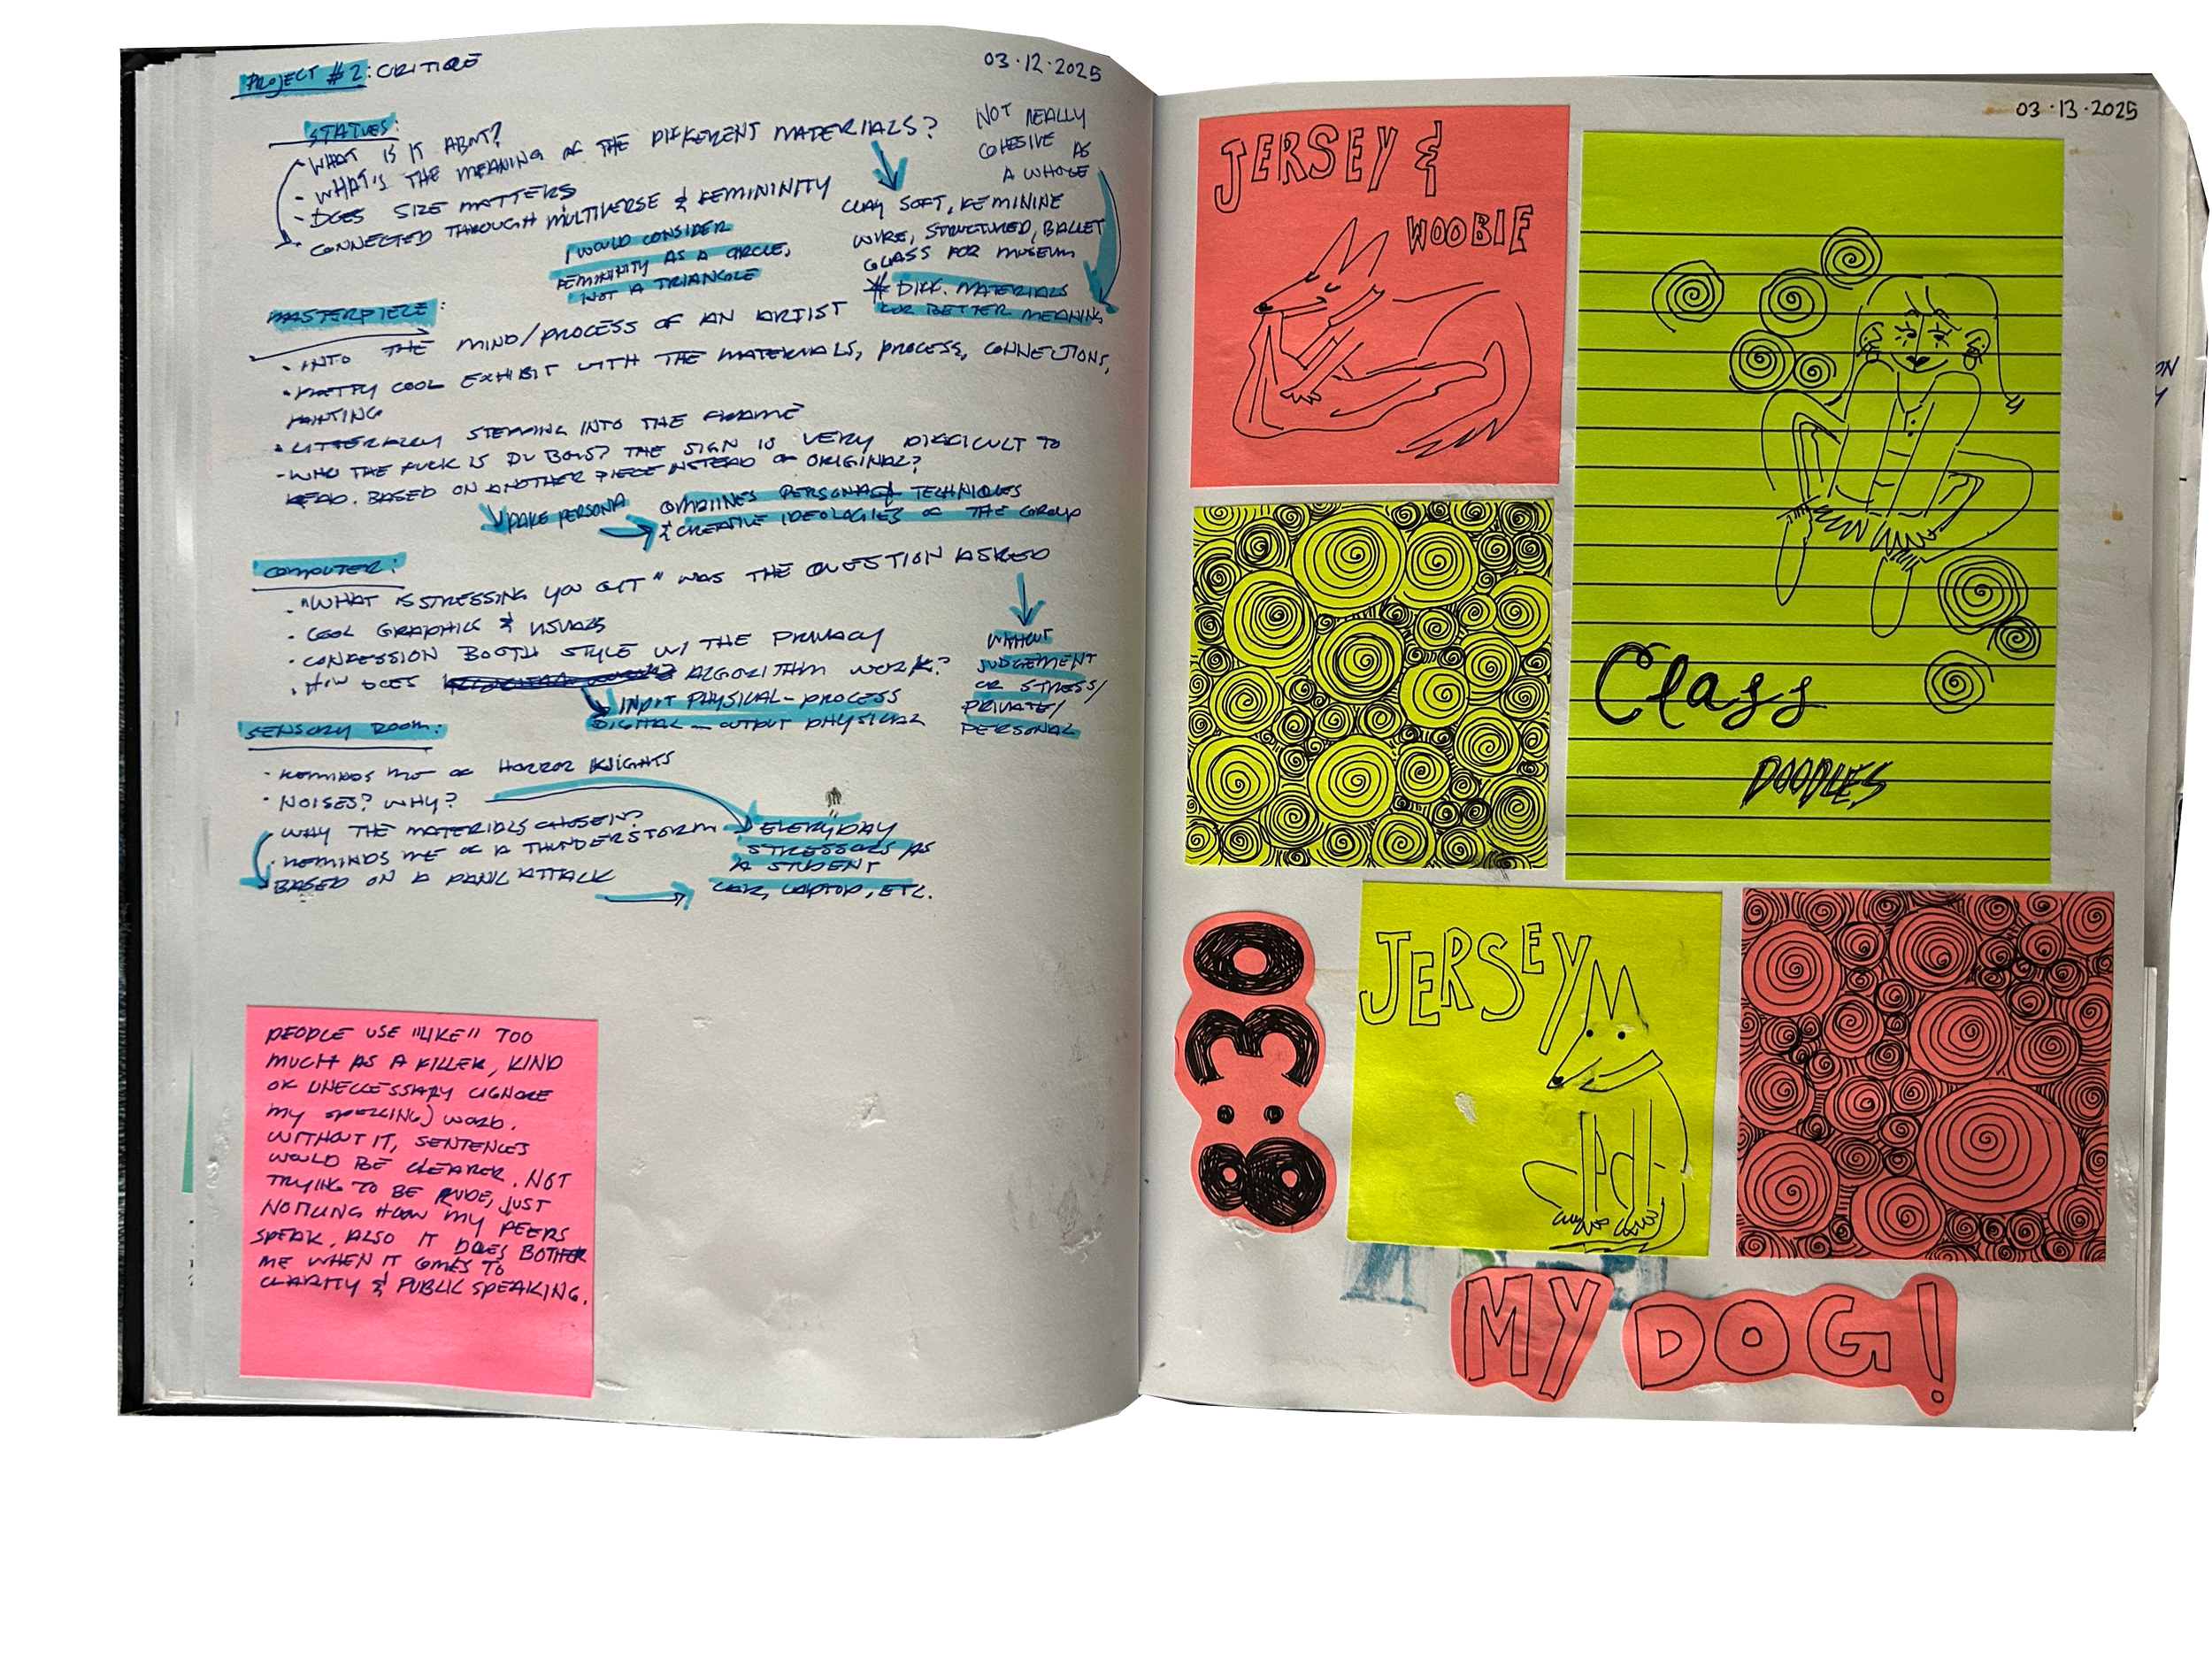 PROJECT #2: CRITIQUE
03.12.2025
STATUES:
- WHAT IS IT ABOUT?
- WHAT'S THE MEANING OF THE DIFFERENT MATERIALS?
- DOES SIZE MATTERS
CONNECTED THROUGH MULTIVERSE & FEMININITY
I WOULD CONSIDER
FEMININITY AS A CIRCLE,
NOT A TRIANGLE
NOT REALLY
COHESIVE AS
A WHOLE
CLAY SOFT, FEMININE
WIRE, STRUCTURED, BALLET
GLASS FOR MUSEUM
* DIFF. MATERIALS
FOR BETTER MEANING
MASTERPIECE:
• INTO THE MIND/PROCESS OF AN ARTIST
• PRETTY COOL EXHIBIT WITH THE MATERIALS, PROCESS, CONNECTIONS,
PAINTING
• LITTERALLY STEPPING INTO THE FRAME
- WHO THE FUCK IS DUBOIS? THE SIGN IS VERY DIFFICULT TO
READ. BASED ON ANOTHER PIECE INSTEAD OF ORIGINAL?
FAKE PERSONA
COMBINES PERSONAS, TECHNIQUES
& CREATIVE IDEOLOGIES OF THE GROUP
COMPUTER:
. "WHAT IS STRESSING YOU OUT" WAS THE QUESTION ASKED
• COOL GRAPHICS & VISUALS
• CONFESSION BOOTH STYLE W/ THE PRIVACY
• HOW DOES ALGORITHM WORK?
INPUT PHYSICAL - PROCESS
DIGITAL - OUTPUT PHYSICAL
WITHOUT
JUDGEMENT
OR STRESS/
PRIVATE/
PERSONAL
SENSORY ROOM:
• REMINDS ME OF HORROR KNIGHTS
• NOISES? WHY?
• WHY THE MATERIALS CHOSEN?
• REMINDS ME OF A THUNDERSTORM
BASED ON A PANIC ATTACK
EVERYDAY
STRESSORS AS
A STUDENT
CAR, LAPTOP, ETC.
PEOPLE USE "LIKE" TOO
MUCH AS A FILLER, KIND
OF UNECCESSARY (IGNORE
MY SPELLING) WORD.
WITHOUT IT, SENTENCES
WOULD BE CLEARER. NOT
TRYING TO BE RUDE, JUST
NOTICING HOW MY PEERS
SPEAK. ALSO IT DOES BOTHER
ME WHEN IT COMES TO
CLARITY & PUBLIC SPEAKING.
03.13.2025
JERSEY &
WOOBIE
Class
DOODLES
8:30
JERSEY
MY DOG!